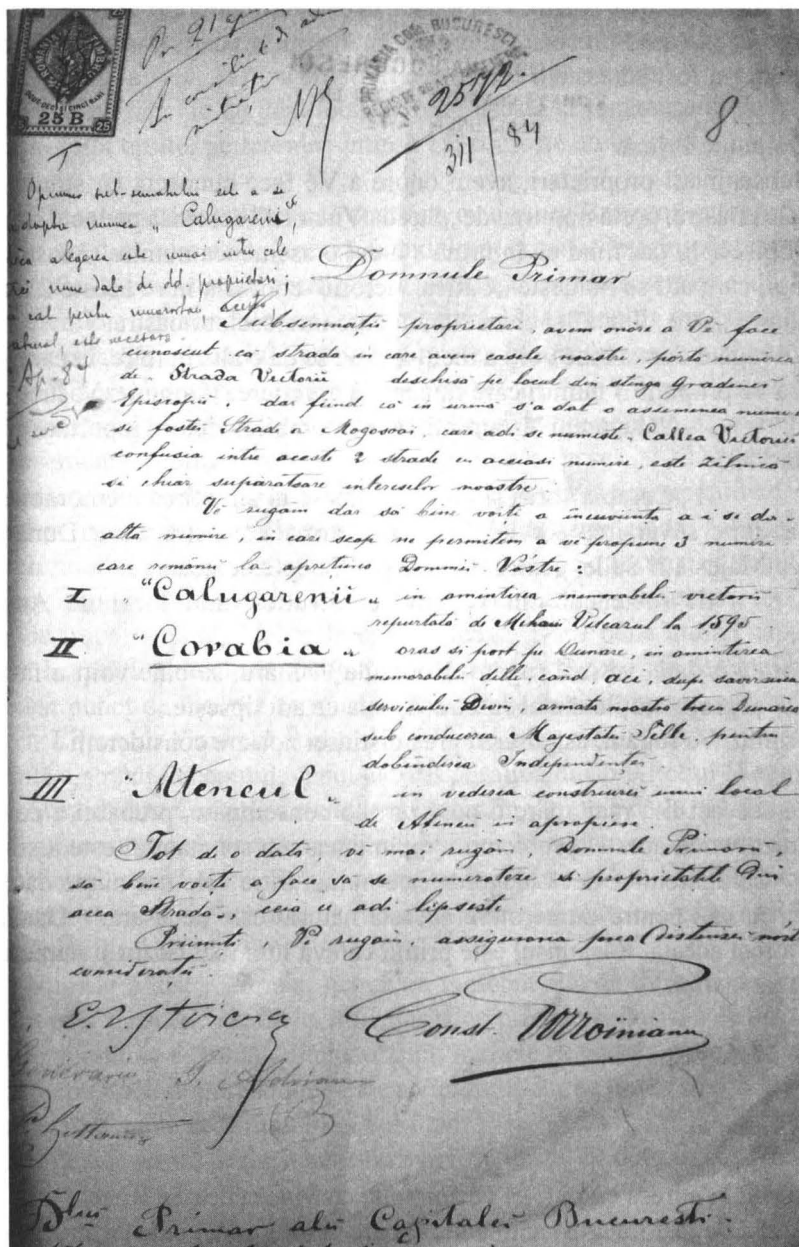 25 B
25
PRIMARIA COM. BUCURESCI
2572
3/II/84
8
Opiniunea sub-semnatului este a se
adopta numirea „Calugarenii"
alegerea este numa intre cele
trei nume date de dd. proprietari;
cat pentru numerotai
este necesara.
Ap. 84
Domnule Primar
Subsemnații proprietari, avem onóre a Ve face
cunoscut ca strada in care avem casele noastre, porta numirea
de Strada Victorii deschisă pe locul din stinga Gradinei
Episcopii dar fiind că in urmă s'a dat o assemenea numire
si fostei Strade a Mogosoai care adi se numeste Callea Victoriei
confusia intre aceste 2 strade cu aceiasi numire, este zilnica
si chiar suparătoare intereselor noastre.
Ve rugăm dar sa bine voiti a incuviinta a i se da
altă numire, in care scop ne permitem a vĕ propune 3 numiri
care remăni la apretierea Domnii Vóstre
I "Calugarenii„ in amintirea memorabilei victorii
repurtată de Mihaiu Viteazul la 1595
II "Corabia„ oras si port pe Dunare, in amintirea
memorabilei dille, când aci, dupe savarsirea
serviciului Divin, armata noastra trecu Dunarea
sub conducerea Majestatei Selle, pentru
dobândirea Independentei
III "Ateneul„ in vederea construirei unui local
de Ateneu in apropiere.
Tot de o dată, ve mai rugăm, Domnule Primaru,
sa bine voiti a face sa se numeroteze si proprietatile din
acea Stradă, ceia ce adi lipseste.
Priimiti, Ve rugăm, assigurarea prea distinsei nostre
consideratii.
Const.
Dlui Primar alŭ Capitalei Bucuresti.